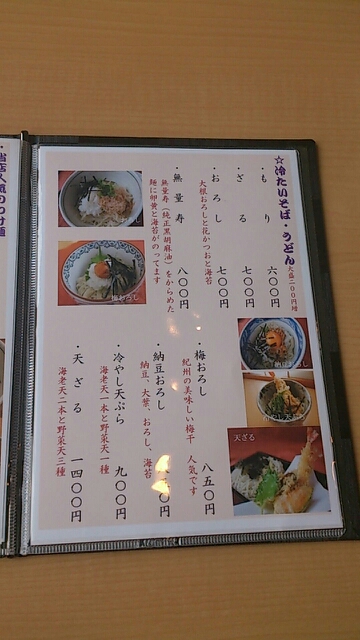 ☆冷たいそば・うどん 大盛二〇〇円増
・もり 六〇〇円
・ざる 七〇〇円
・おろし 七〇〇円
大根おろしと花かつおと海苔
・無量寿 八〇〇円
無量寿(純正黒胡麻油)をからめた
麺に卵黄と海苔がのってます
・梅おろし 八五〇円
紀州の美味しい梅干 人気です
・納豆おろし 円
納豆、大葉、おろし、海苔
・冷やし天ぷら 九〇〇円
海老天一本と野菜天一種
・天ざる 一四〇〇円
海老天二本と野菜天三種
梅おろし
冷やし天ぷら
天ざる
当店人気のつけ麺